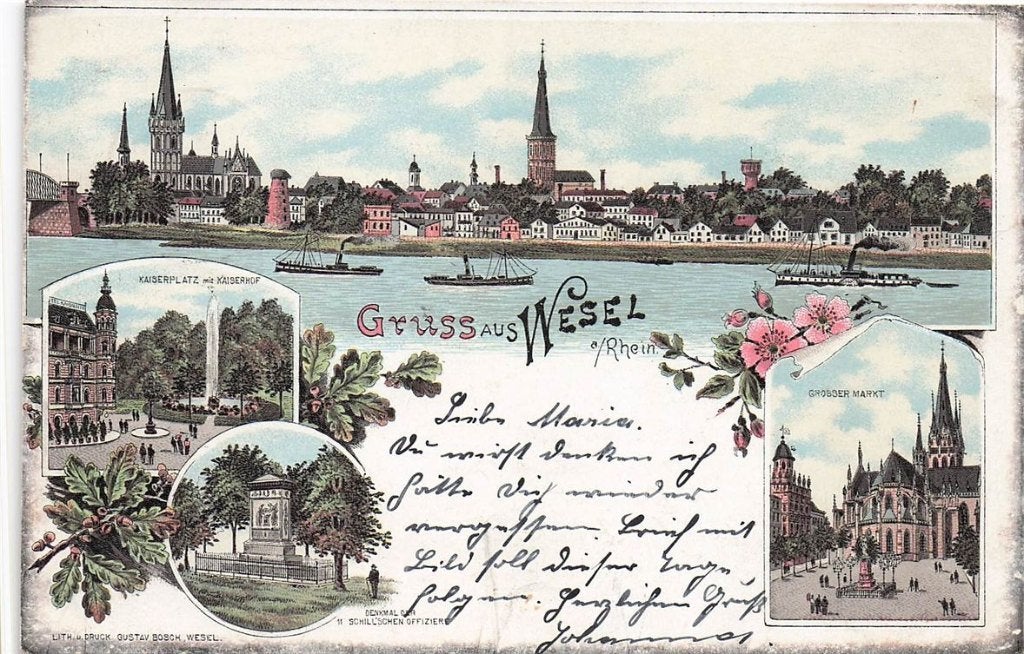 KAISERPLATZ mit KAISERHOF
GRUSS AUS WESEL
a/Rhein.
GROSSER MARKT
Liebe Maria.
Du wirst denken ich
hätte Dich wieder
vergessen. Brief mit
Bild soll dieser Tage
folgen. Herzlichen Gruß
Johannes
DENKMAL DER
11 SCHILL'SCHEN OFFIZIERE
LITH. u. DRUCK GUSTAV BOSCH, WESEL.